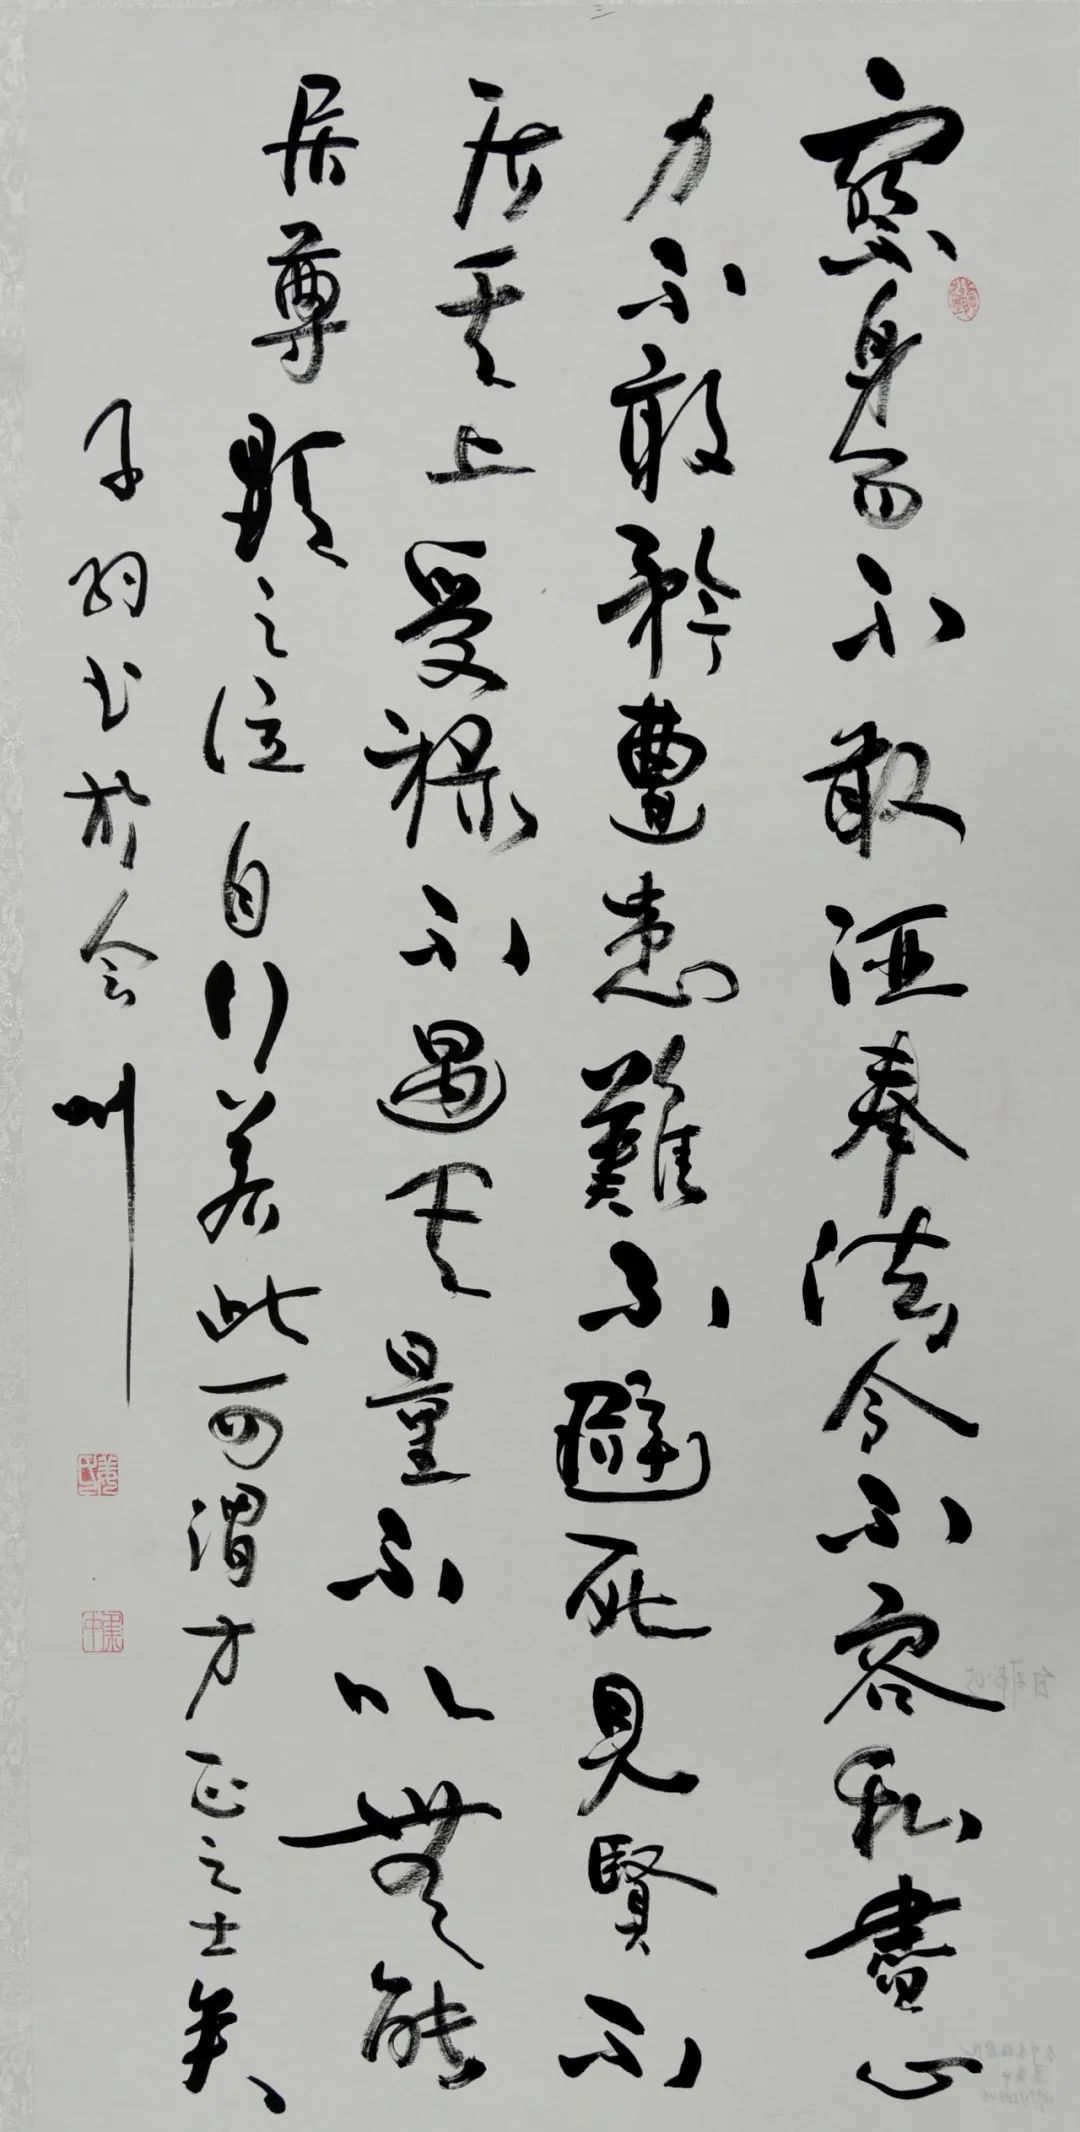 察身而不敢誣奉法令不容私盡心
力不敢矜遭患難不避死見賢不
居其上受祿不過其量不以無能
居尊顯之位自行若此可謂方正之士矣
子書於会州